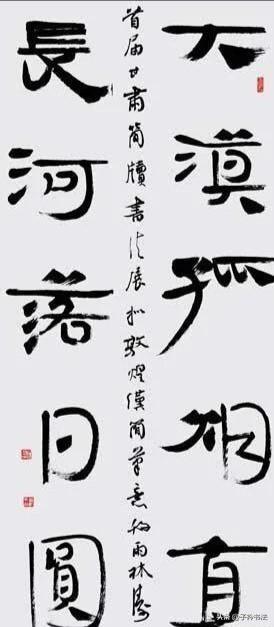 大漠孤烟直
首届甘肅簡牘書法展拟敦煌漢簡筆意雨林
長河落日圓
头条@子矜书法